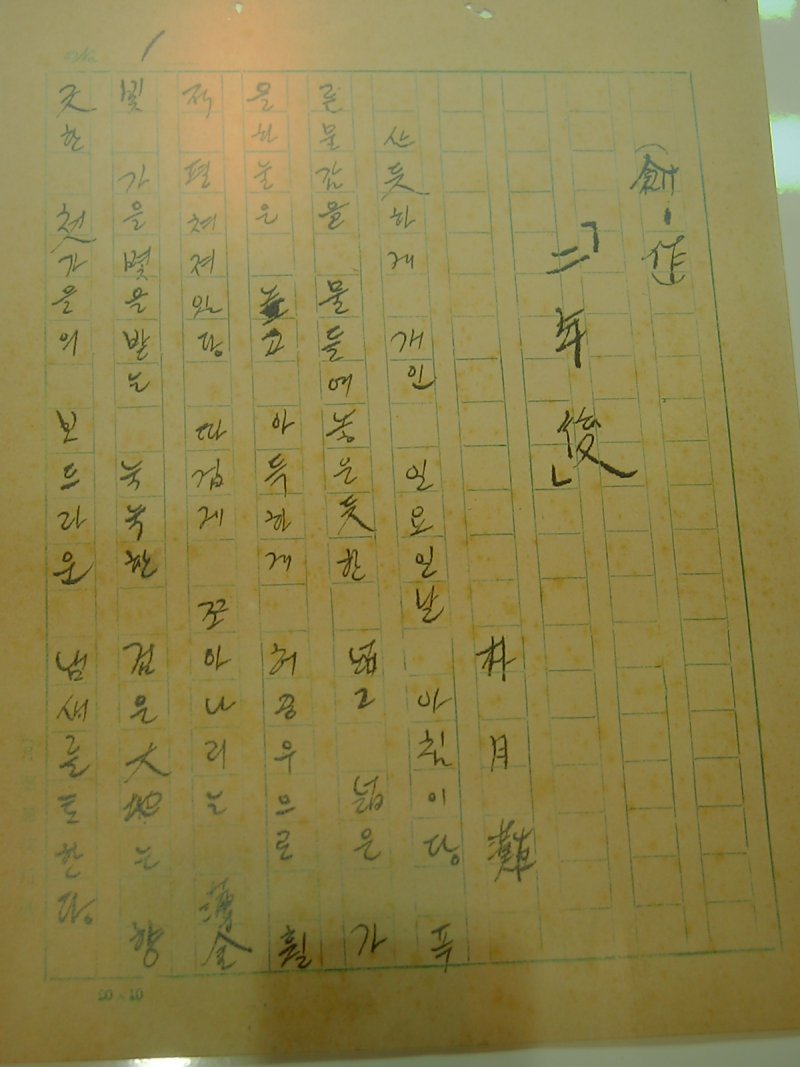 No. 1
(創·作)
「二年後」
朴月灘
산듯하게 개인 일요일날 아침이다. 푸
른물감을 물들여놓은듯한 넓고 넓은 가
을하눌은 높고 아득하게 허공우으로 훨
적 펼쳐져있다. 따갑게 쪼아나리는 薄金
빛 가을볕을받는 눅눅한 검은大地는 향
긋한 첫가을의 보드라운 냄새를토한다.
20×10